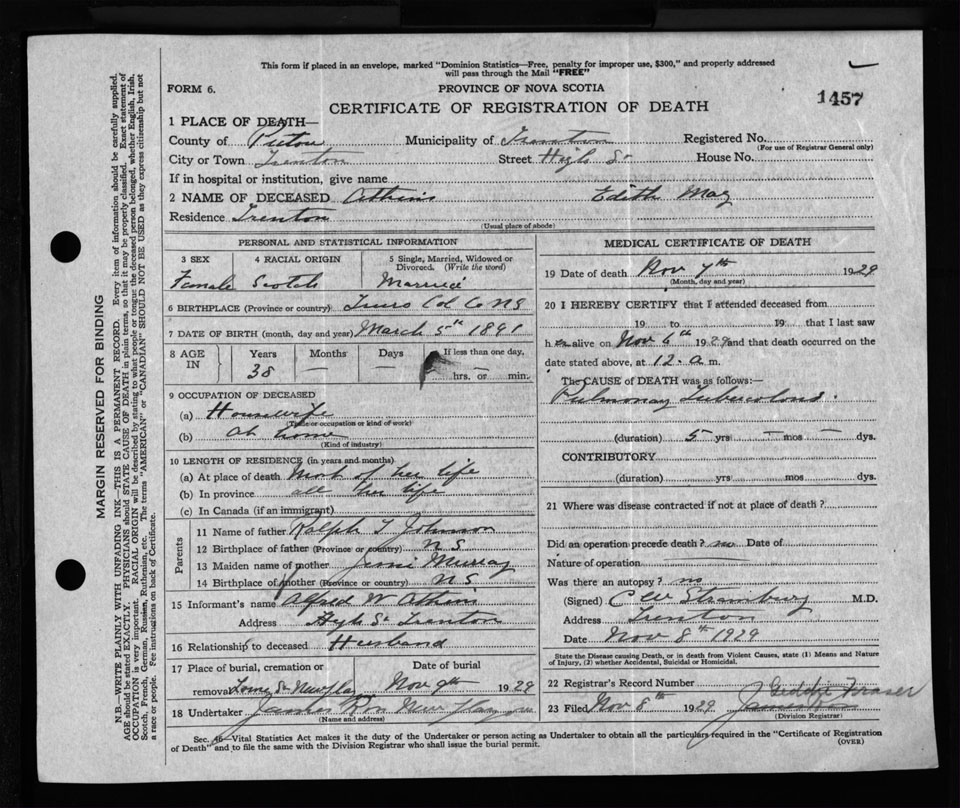 This form if placed in an envelope, marked "Dominion Statistics—Free, penalty for improper use, $300," and properly addressed
will pass through the Mail "FREE"
FORM 6.
PROVINCE OF NOVA SCOTIA
CERTIFICATE OF REGISTRATION OF DEATH
1457
1 PLACE OF DEATH—
County of Pictou Municipality of Trenton Registered No.
(For use of Registrar General only)
City or Town Trenton Street High St House No.
If in hospital or institution, give name
2 NAME OF DECEASED Atkins Edith May
Residence Trenton
(Usual place of abode)
PERSONAL AND STATISTICAL INFORMATION
3 SEX
Female
4 RACIAL ORIGIN
Scotch
5 Single, Married, Widowed or
Divorced. (Write the word)
Married
6 BIRTHPLACE (Province or country) Truro Col Co NS
7 DATE OF BIRTH (month, day and year) March 5th 1891
8 AGE IN
Years 38
Months —
Days —
If less than one day,
hrs. — or min.
9 OCCUPATION OF DECEASED
(a) Housewife
(Trade or occupation or kind of work)
(b) at home
(Kind of industry)
10 LENGTH OF RESIDENCE (in years and months)
(a) At place of death Most of her life
(b) In province all her life
(c) In Canada (if an immigrant)
Parents
11 Name of father Ralph T Johnson
12 Birthplace of father (Province or country) N S
13 Maiden name of mother Jennie Murray
14 Birthplace of mother (Province or country) N S
15 Informant's name Alfred W Atkins
Address High St Trenton
16 Relationship to deceased Husband
17 Place of burial, cremation or Date of burial
removal Nov 9th 1929
18 Undertaker James
(Name and address)
MEDICAL CERTIFICATE OF DEATH
19 Date of death Nov 7th 1929
(Month, day and year)
20 I HEREBY CERTIFY that I attended deceased from
19 to 19 that I last saw
her alive on Nov 6th 1929 and that death occurred on the
date stated above, at 12. a m.
The CAUSE OF DEATH was as follows:—
Pulmonay Tuberculosis.
(duration) 5 yrs — mos — dys.
CONTRIBUTORY
(duration) yrs mos dys.
21 Where was disease contracted if not at place of death?
Did an operation precede death? no Date of
Nature of operation
Was there an autopsy? no
(Signed) M.D.
Address Trenton
Date Nov 8th 1929
State the Disease causing Death, or in death from Violent Causes, state (1) Means and Nature
of Injury, (2) whether Accidental, Suicidal or Homicidal.
22 Registrar's Record Number
J Geddie Fraser
23 Filed Nov 8th 1929
(Division Registrar)
Sec. 46—Vital Statistics Act makes it the duty of the Undertaker or person acting as Undertaker to obtain all the particulars required in the "Certificate of Registration
of Death" and to file the same with the Division Registrar who shall issue the burial permit.
(OVER)
MARGIN RESERVED FOR BINDING
N.B.—WRITE PLAINLY WITH UNFADING INK—THIS IS A PERMANENT RECORD. Every item of information should be carefully supplied.
AGE should be stated EXACTLY. PHYSICIANS should STATE CAUSE OF DEATH in plain terms, so that it may be properly classified. Exact statement of
OCCUPATION is very important. RACIAL ORIGIN will be described by stating to what people or tongue the deceased person belonged, whether English, Irish,
Scotch, French, German, Russian, Ruthenian, etc. The terms "AMERICAN" or "CANADIAN" SHOULD NOT BE USED as they express citizenship but not
a race or people. See instructions on back of Certificate.